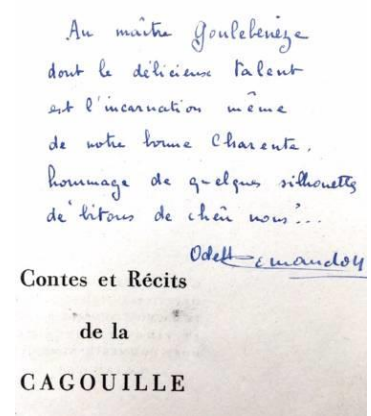 Au maître Goulebenéze
dont le délicieux talent
est l'incarnation même
de notre bonne Charente,
hommage de quelques silhouettes
de "bitons de cheû nous"...
Odette Comandon
Contes et Récits
de la
CAGOUILLE